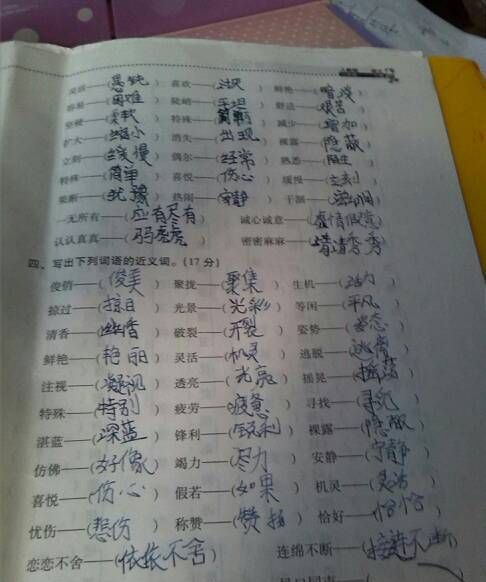 ——(愚钝) 喜欢——(讨厌) 鲜艳——(暗淡)
容易——(困难) 陡峭——(平坦) 舒适——(艰苦)
坚硬——(柔软) 特殊——(简单) 减少——(增加)
扩大——(缩小) 消失——(出现) 裸露——(隐蔽)
立刻——(缓慢) 偶尔——(经常) 熟悉——(陌生)
特殊——(简单) 喜悦——(伤心) 缓慢——(立刻)
果断——(犹豫) 热闹——(安静) 干涸——
一无所有——(应有尽有) 诚心诚意——(虚情假意)
认认真真——(马虎虎) 密密麻麻——
四、写出下列词语的近义词。(17分)
俊俏——(俊美) 聚拢——(聚集) 生机——(活力)
掠过——(掠目) 光景——(光彩) 等闲——(平凡)
清香——(幽香) 破裂——(开裂) 姿势——(姿态)
鲜艳——(艳丽) 灵活——(机灵) 逃脱——
注视——(凝视) 透亮——(光亮) 摇晃——(摇荡)
特殊——(特别) 疲劳——(疲惫) 寻找——(寻觅)
湛蓝——(深蓝) 锋利——(锐利) 裸露——(隐蔽)
仿佛——(好像) 竭力——(尽力) 安静——(宁静)
喜悦——(伤心) 假若——(如果) 机灵——(灵活)
忧伤——(悲伤) 称赞——(赞扬) 恰好——(恰恰)
恋恋不舍——(依依不舍) 连绵不断——(接连不断)